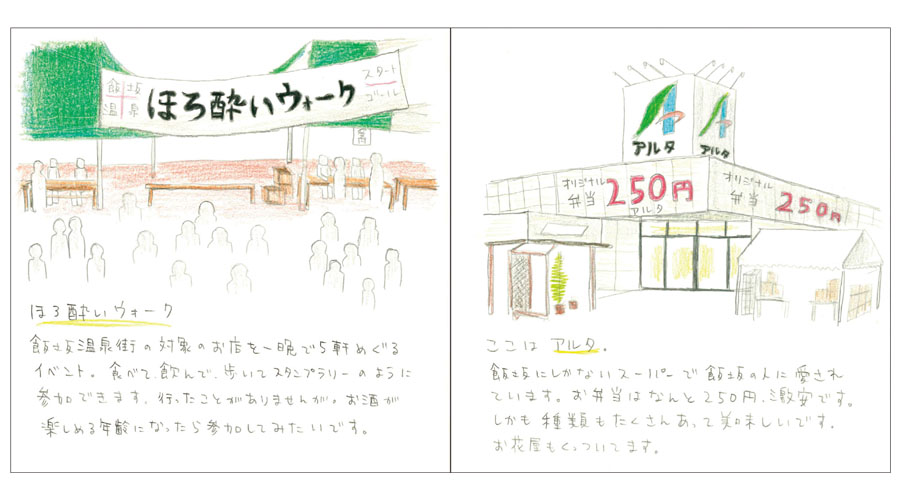 飯坂
温泉
ほろ酔いウォーク
スタート
ゴール
ほろ酔いウォーク
飯坂温泉街の対象のお店を一晩で5軒めぐる
イベント。食べて、飲んで、歩いてスタンプラリーのように
参加できます。行ったことがありませんが。お酒が
楽しめる年齢になったら参加してみたいです。
アルタ
アルタ
オリジナル
弁当
250円
アルタ
オリジナル
弁当
250円
ここは アルタ。
飯坂にしかないスーパーで飯坂の人に愛され
ています。お弁当はなんと250円、激安です。
しかも種類もたくさんあって美味しいです。
お花屋もくっついてます。